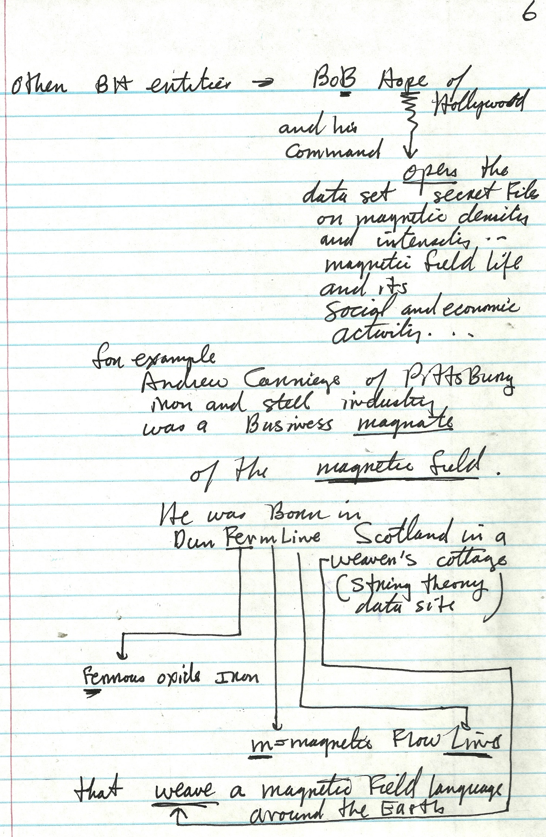 6
Other BH entities → BoB Hope of
Hollywood
and his
command
opens the
data set secret File
on magnetic densities
and intensities ..
magnetic field life
and its
social and economic
activity. . .
for example
Andrew Carniege of PittsBurg
iron and steel industry
was a Business magnate
of the magnetic field.
He was Born in
DunFermLine Scotland in a
weaver's cottage
(string theory
data site)
Ferrous oxide Iron
m=magnetic Flow Lines
that weave a magnetic Field language
around the Earth